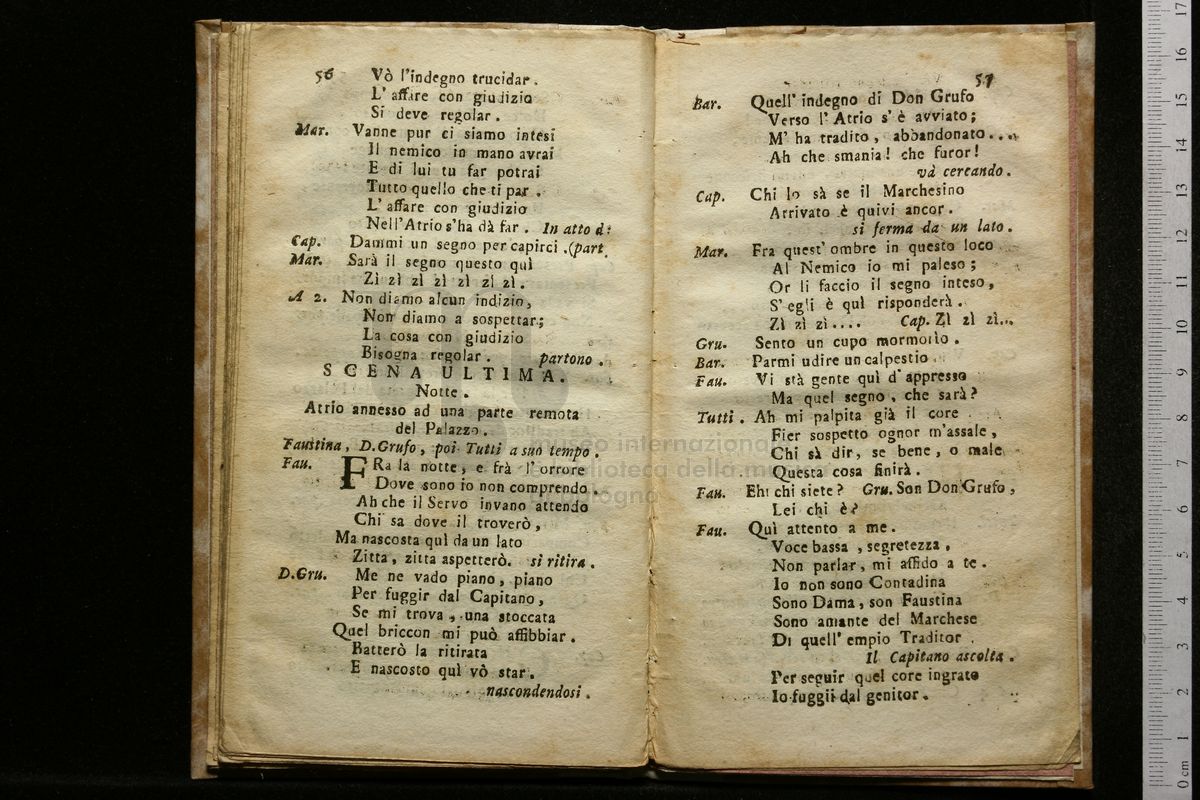 56
Vò l'indegno trucidar.
L' affare con giudizio
Si deve regolar.
Mar. Vanne pur ci siamo intesi
Il nemico in mano avrai
E di lui tu far potrai
Tutto quello che ti par.
L' affare con giudizio
Nell'Atrio s'ha dà far. In atto d:
Cap. Dammi un segno per capirci. (part.
Mar. Sarà il segno questo quì
Zì zì zì zì zì zì zì.
A 2. Non diamo alcun indizio,
Non diamo a sospettar;
La cosa con giudizio
Bisogna regolar. partono.
SCENA ULTIMA.
Notte.
Atrio annesso ad una parte remota
del Palazzo.
Faustina, D.Grufo, poi Tutti a suo tempo.
Fau. FRa la notte, e frà l'orrore
Dove sono io non comprendo.
Ah che il Servo invano attendo
Chi sa dove il troverò,
Ma nascosta quì da un lato
Zitta, zitta aspetterò. si ritira.
D.Gru. Me ne vado piano, piano
Per fuggir dal Capitano,
Se mi trova, una stoccata
Quel briccon mi può affibbiar.
Batterò la ritirata
E nascosto quì vò star.
nascondendosi.
57
Bar. Quell' indegno di Don Grufo
Verso l'Atrio s'è avviato;
M' ha tradito, abbandonato....
Ah che smania! che furor!
và cercando.
Cap. Chi lo sà se il Marchesino
Arrivato è quivi ancor.
si ferma da un lato.
Mar. Fra quest' ombre in questo loco
Al Nemico io mi paleso;
Or li faccio il segno inteso,
S' egli è quì risponderà.
Zì zì zì.... Cap. Zì zì zì...
Gru. Sento un cupo mormorio.
Bar. Parmi udire un calpestio.
Fau. Vi stà gente quì d'appresso
Ma quel segno, che sarà?
Tutti. Ah mi palpita già il core
Fier sospetto ognor m'assale,
Chi sà dir, se bene, o male
Questa cosa finirà.
Fau. Eh! chi siete? Gru. Son Don Grufo,
Lei chi è?
Fau. Quì attento a me.
Voce bassa, segretezza,
Non parlar, mi affido a te.
Io non sono Contadina
Sono Dama, son Faustina
Sono amante del Marchese
Di quell' empio Traditor.
Il Capitano ascolta.
Per seguir quel core ingrato
Io fuggii dal genitor.
museo internazionale
biblioteca della musica
bologna
0 cm 1 2 3 4 5 6 7 8 9 10 11 12 13 14 15 16 17